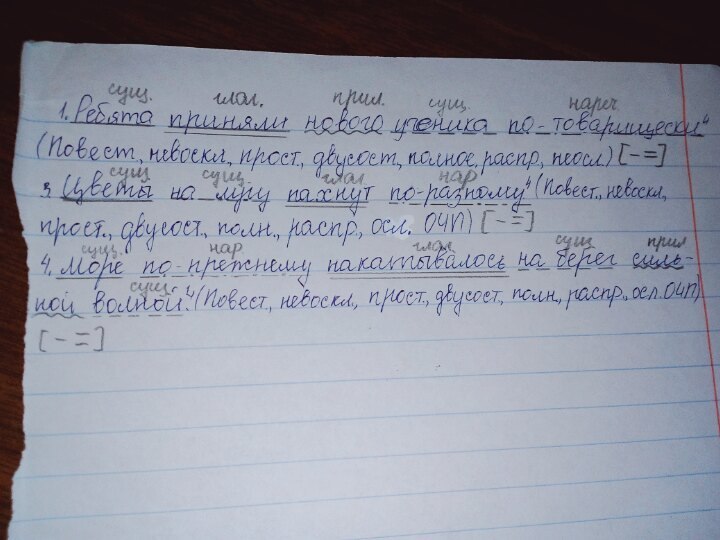 сущ. глаг. прил. сущ. нареч
1. Ребята приняли нового ученика по-товарищески⁴
(Повест., невоскл., прост., двусост., полное, распр., неосл.) [- =]
сущ сущ. глаг. нар
3. Цветы на лугу пахнут по-разному⁴ (Повест., невоскл.,
прост., двусост., полн., распр., осл. ОЧП) [- =]
сущ. нар. глаг. сущ прил
4. Море по-прежнему накатывалось на берег силь-
сущ.
ной волной.⁴ (Повест, невоскл., прост, двусост, полн, распр., осл. ОЧП)
[- =]